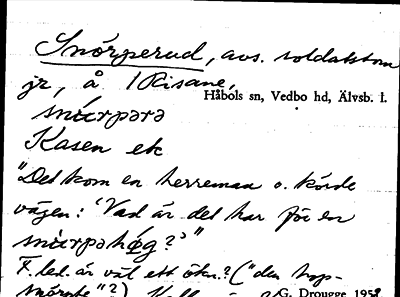 Snörperud, avs. soldatstom
jr, å 1 Risane,
Håbols sn, Vedbo hd, Älvsb. l.
snürpərə
Kasen etc
"Det kom en herreman o. körde
vägen: 'Vad är det här för en
snürpəhøg?'"
F. led. är väl ett ökn.? ("den hop-
G. Drougge 1958